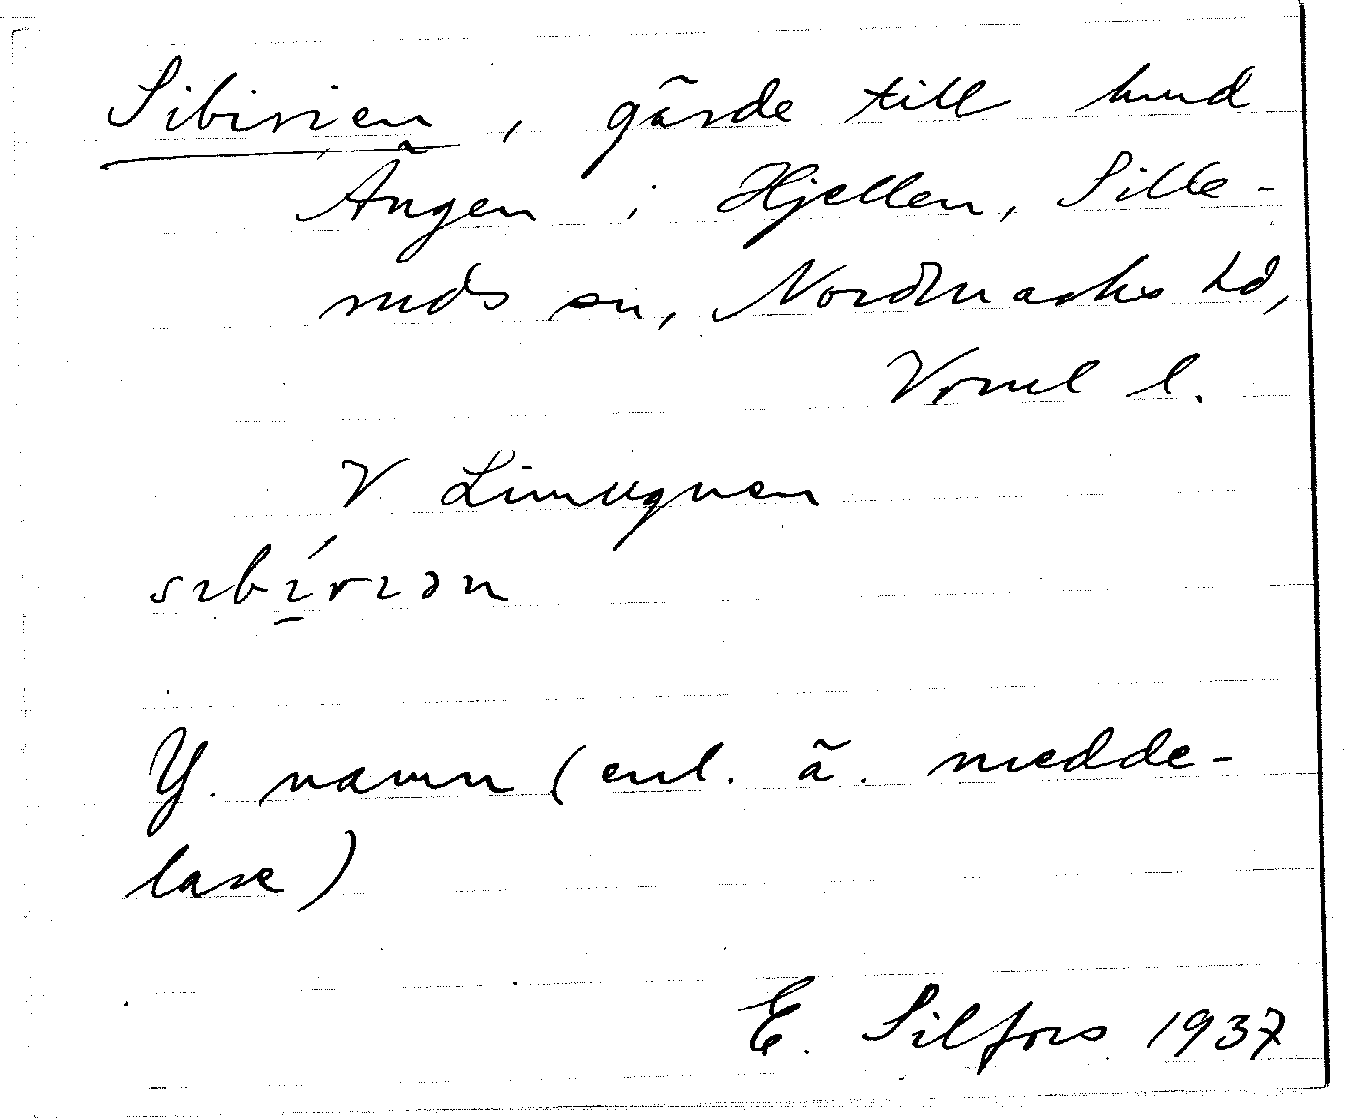 Sibirien, gärde till hmd
Ängen i Hjellen, Sille-
ruds sn, Nordmarks hd,
Vrml l.
V Limugnen
sıbı́rıən
Y. namn (enl. ä. medde-
lare)
E. Silfors 1937